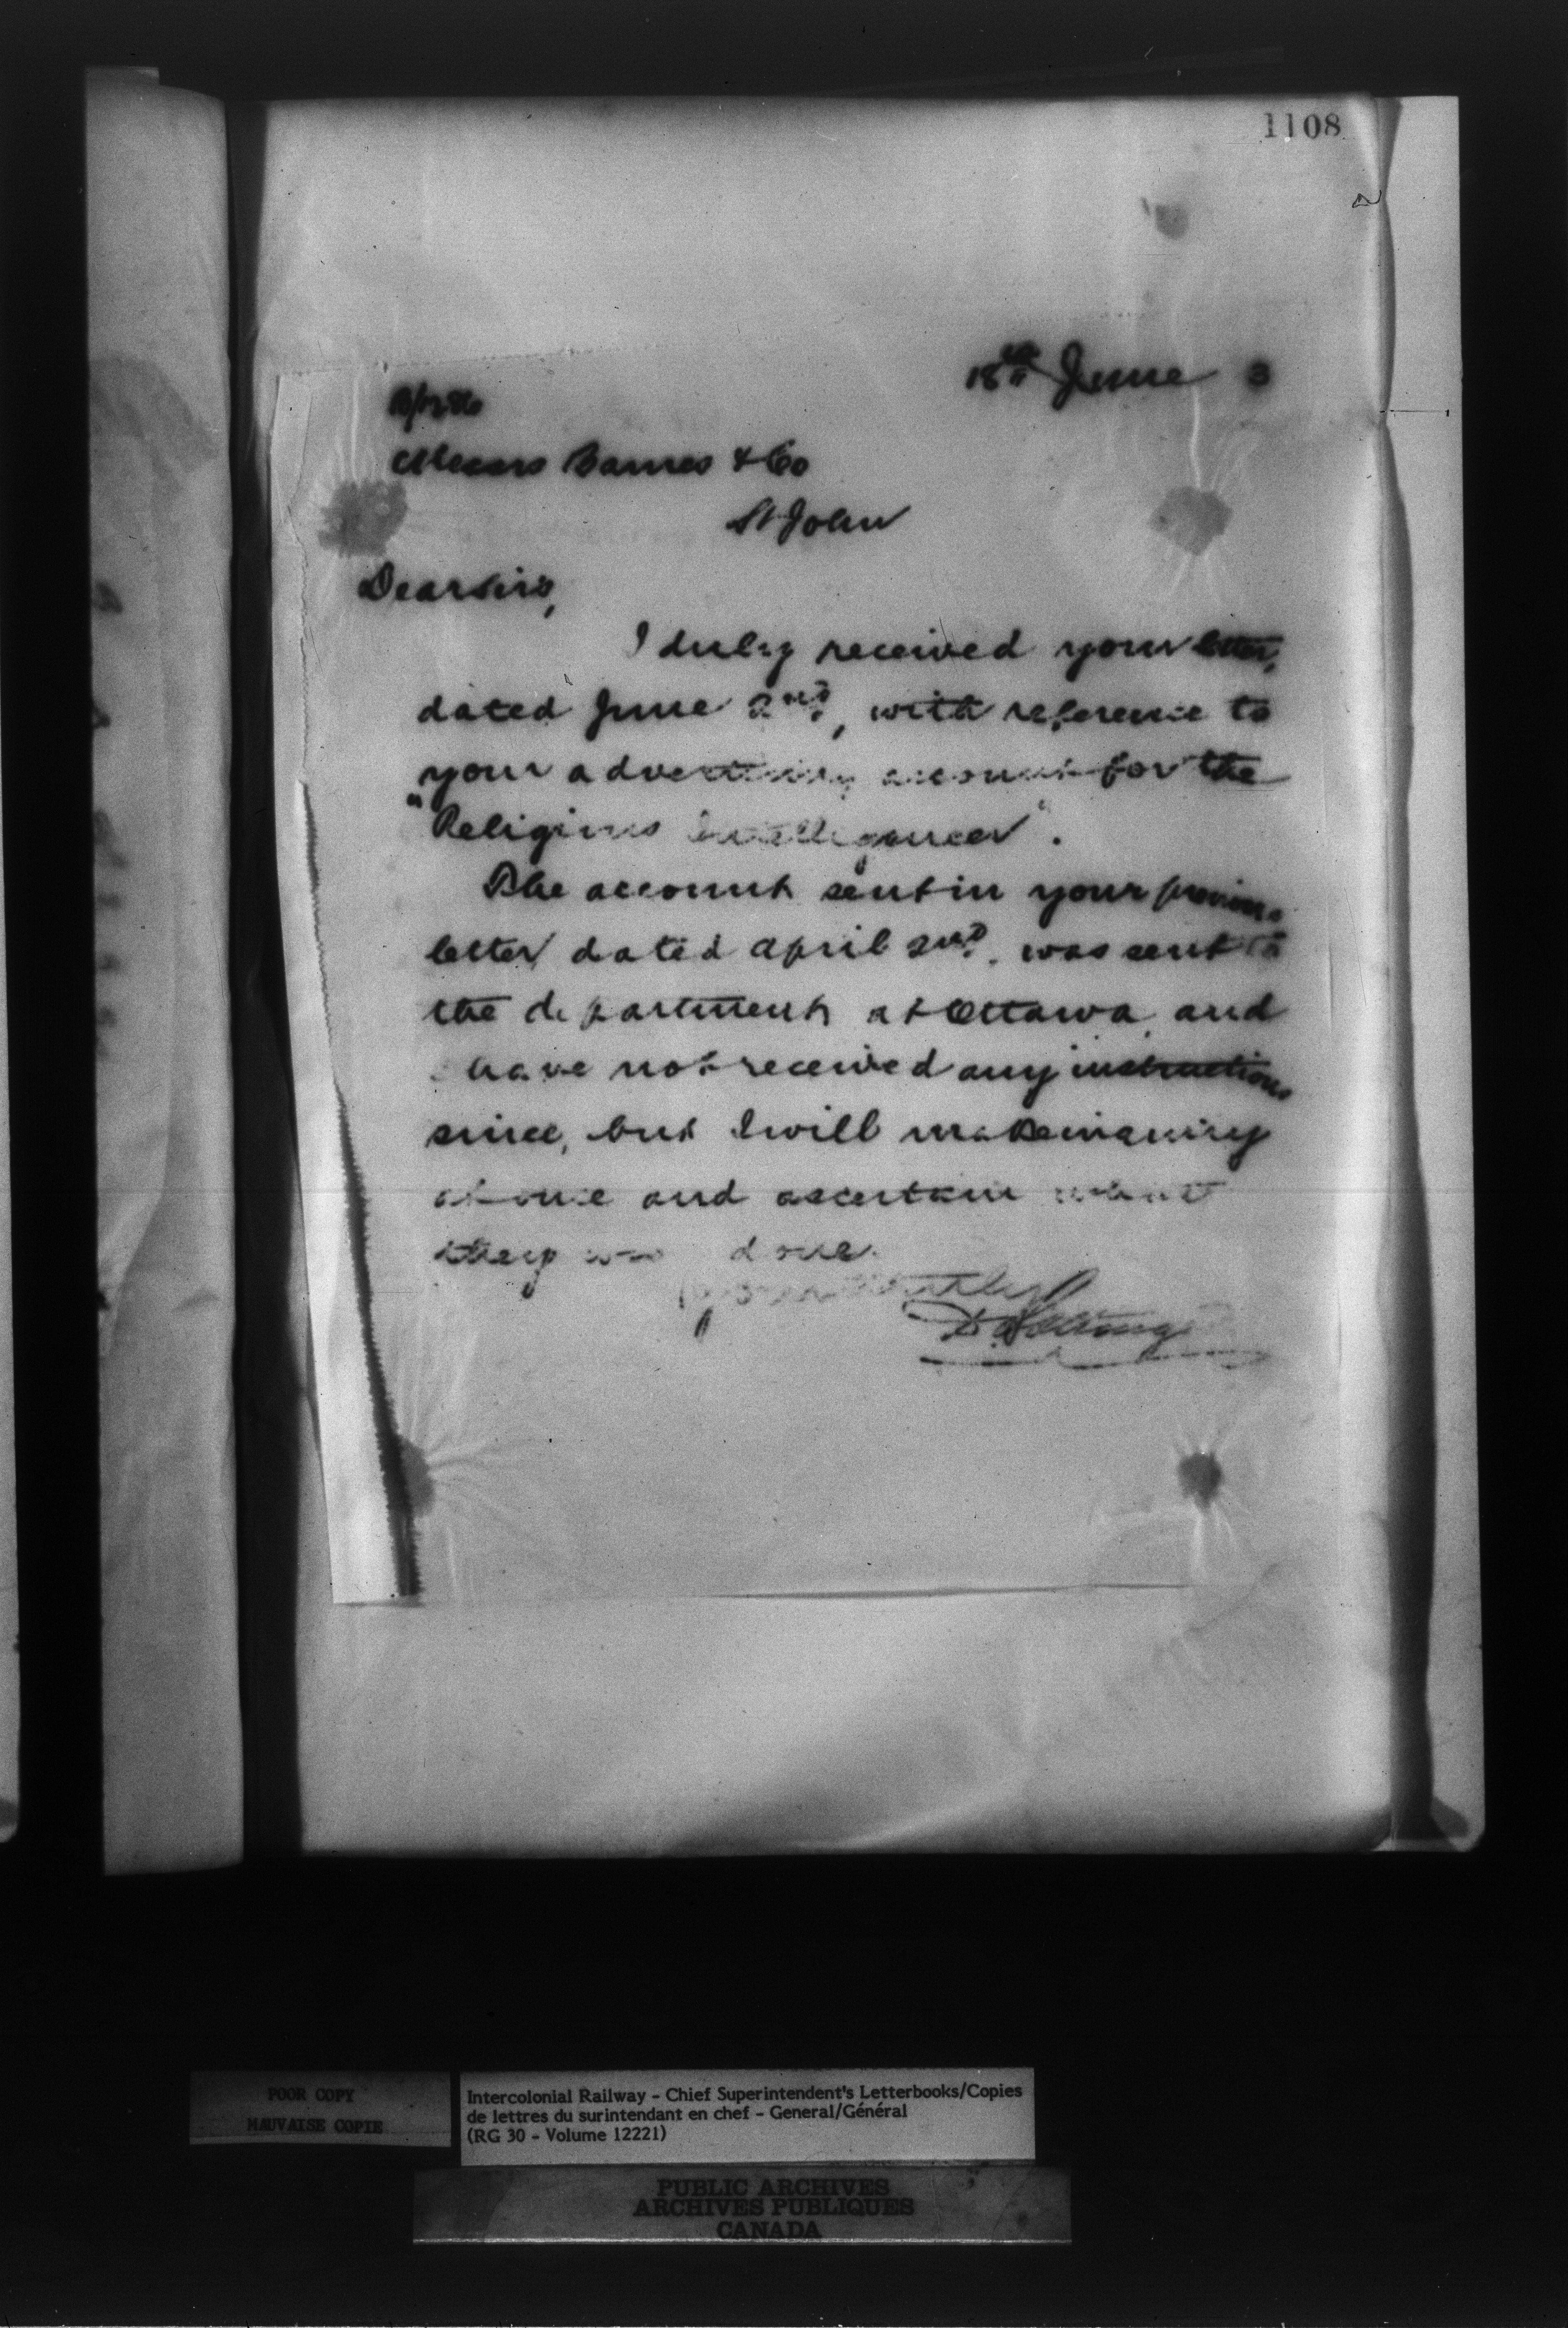 1108
18th June 3
Messrs Barnes & Co
St John
Dear Sirs,
I duly received your letter,
dated June 2nd, with reference to
your advertising account for the
"Religious Intelligencer".
The account sent in your previous
letter dated April 2nd, was sent to
the department at Ottawa, and
have not received any instructions
since, but I will make inquiry
at once and ascertain what
they done.
Yours truly
D Pottinger
POOR COPY
MAUVAISE COPIE
Intercolonial Railway - Chief Superintendent's Letterbooks/Copies
de lettres du surintendant en chef - General/Général
(RG 30 - Volume 12221)
PUBLIC ARCHIVES
ARCHIVES PUBLIQUES
CANADA